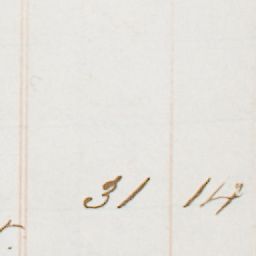 31 14